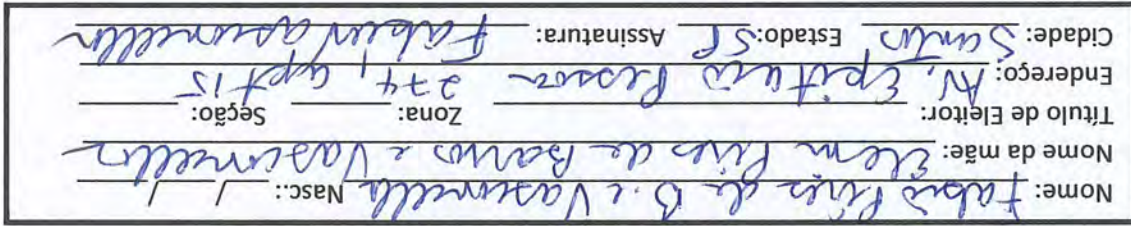 Nome: Fabio Pires de B. e Vasconcellos Nasc.: / /
Nome da mãe: Elem Pires de Barros e Vasconcellos
Título de Eleitor: Zona: Seção:
Endereço: Av. Epitácio Pessoa 274, apt 15
Cidade: Santos Estado: SP Assinatura: Fabio Vasconcellos